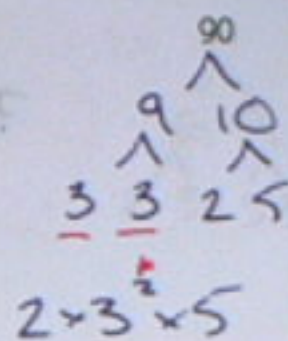 90
9 10
3 3 2 5
2×3²×5